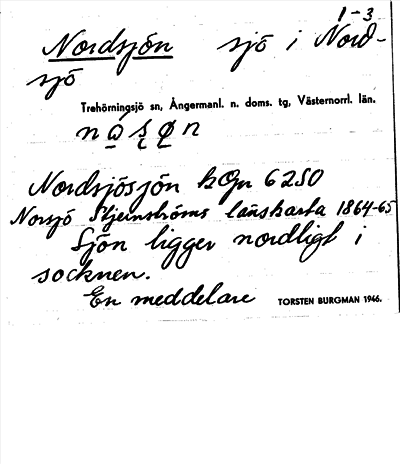 1-3
Nordsjön sjö i Nord-
sjö
Trehörningsjö sn, Ångermanl. n. doms. tg, Västernorrl. län.
Nordsjösjön hGr 62SO
Norsjö Stjernströms länskarta 1864-65
Sjön ligger nordligt i
socknen.
En meddelare TORSTEN BURGMAN 1946.